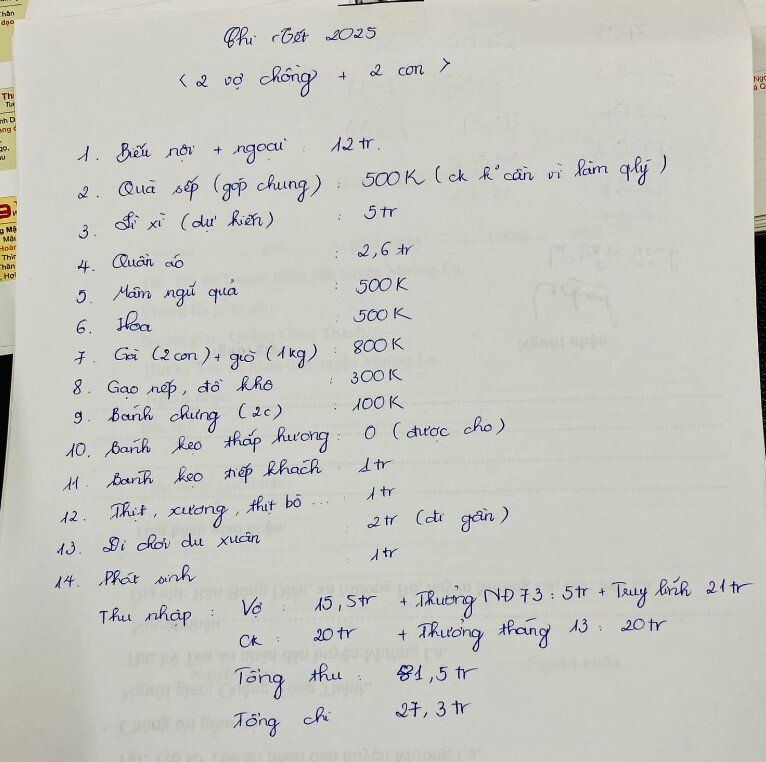 Chi Tết 2025
< 2 vợ chồng + 2 con >
1. Biếu nội + ngoại : 12 tr.
2. Quà sếp (góp chung) : 500K (ck k cần vì làm qlý)
3. Lì xì (dự kiến) : 5 tr
4. Quần áo : 2,6 tr
5. Mâm ngũ quả : 500K
6. Hoa : 500K
7. Gà (2 con) + giò (1kg) : 800K
8. Gạo nếp, đồ khô : 300K
9. Bánh chưng (2c) : 100K
10. Bánh kẹo thắp hương : 0 (được cho)
11. Bánh kẹo tiếp khách : 1 tr
12. Thịt, xương, thịt bò ... : 1 tr
13. Đi chơi du xuân : 2 tr (đi gần)
14. Phát sinh : 1 tr
Thu nhập : Vợ : 15,5 tr + Thưởng NĐ 73 : 5 tr + Truy lĩnh 21 tr
Ck : 20 tr + Thưởng tháng 13 : 20 tr
Tổng thu : 81,5 tr
Tổng chi 27,3 tr